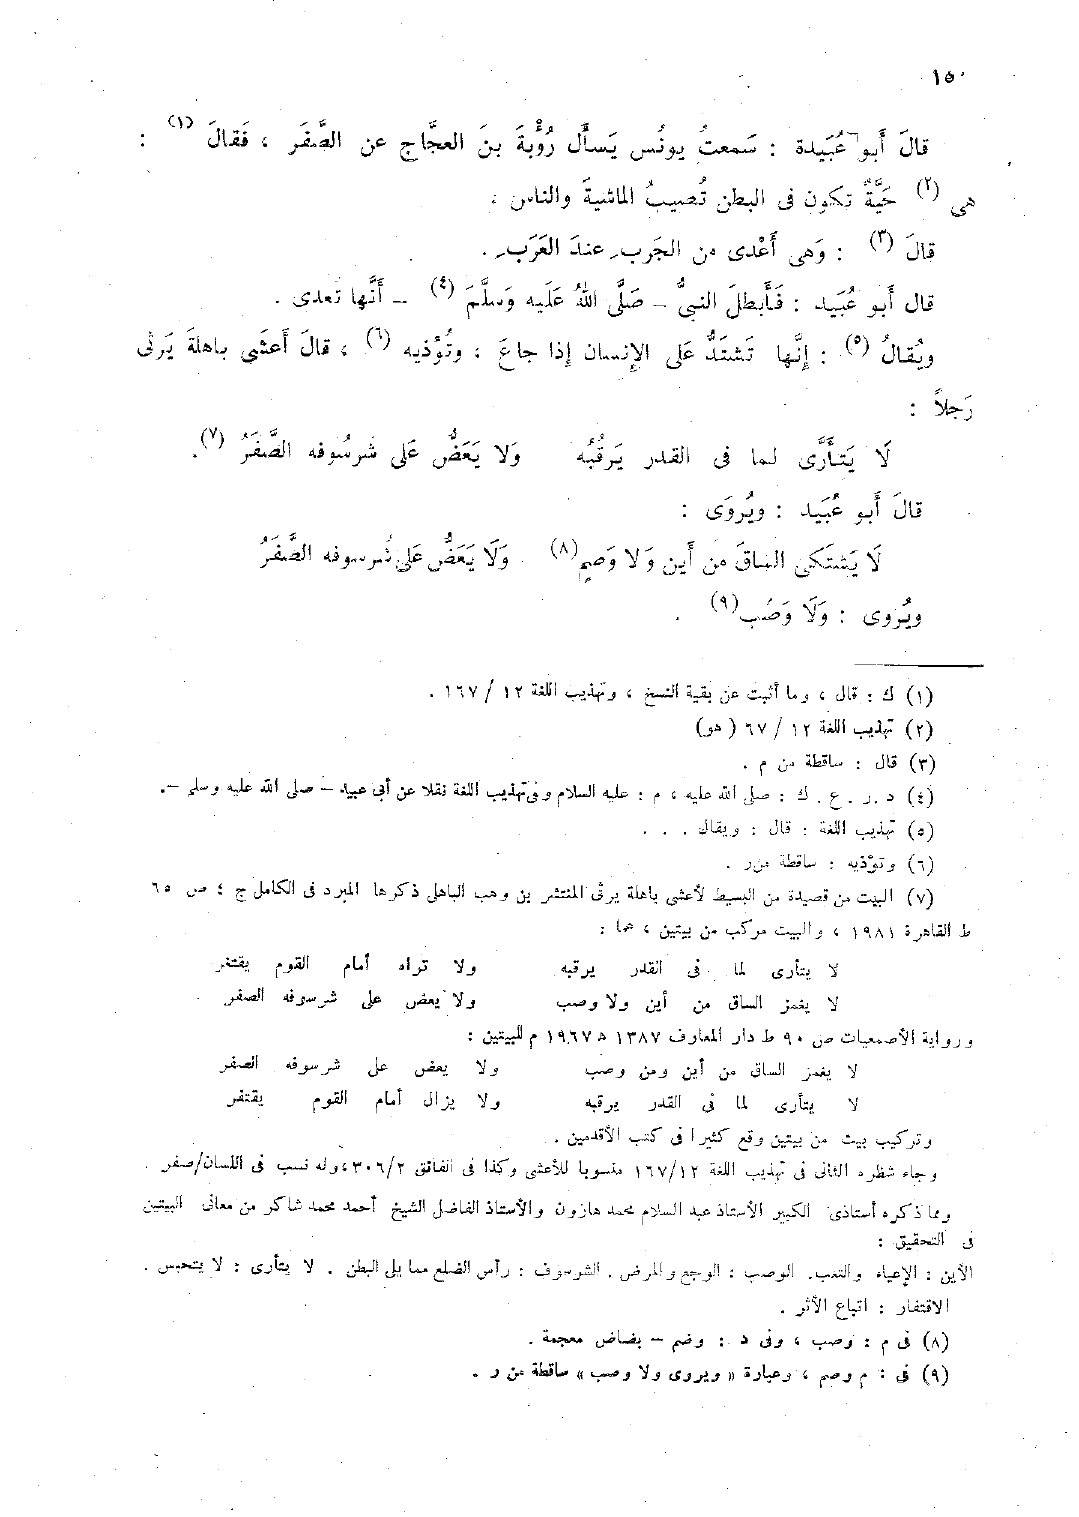 ١٥٠
قالَ أَبو عُبَيدة : سَمعتُ يونُس يَسأَل رُؤْبةَ بنَ العجَّاج عن الصَّفَر ، فَقالَ (١) :
هى (٢) حَيَّةٌ تكون فى البطن تُصيبُ الماشيةَ والناس ،
قالَ (٣) : وَهى أَعْدى من الجَرب عندَ العَرَب .
قال أَبو عُبَيد : فَأَبطلَ النبىُّ – صَلَّى اللهُ عَلَيه وَسلَّمَ (٤) – أَنَّها تعدى .
ويُقالُ (٥) : إِنَّها تَشتَدُّ عَلى الإِنسان إِذا جاعَ ، وتُؤْذيه (٦) ، قالَ أَعشَى باهلةَ يَرثى
رَجلاً :
لَا يَتأَرَّى لما فى القدر يَرقُبُه ولا يَعَضُّ عَلى شرسُوفه الصَّفَرُ (٧) .
قالَ أَبو عُبَيد : ويُروَى :
لَا يَشتَكى الساقَ من أَين وَلا وَصمٍ (٨) وَلَا يَعَضُّ عَلى شُرسوفه الصَّفَرُ
ويُروى : وَلَا وَصَب (٩) .
(١) ك : قال ، وما أثبت عن بقية النسخ ، وتهذيب اللغة ١٢ / ١٦٧ .
(٢) تهذيب اللغة ١٢ / ٦٧ ( هو)
(٣) قال : ساقطة من م .
(٤) د . ر . ع . ك : صلى الله عليه ، م : عليه السلام وفى تهذيب اللغة نقلا عن أبى عبيد – صلى الله عليه وسلم – .
(٥) تهذيب اللغة : قال : ويقال . . .
(٦) وتؤذيه : ساقطة من ر .
(٧) البيت من قصيدة من البسيط لأعشى باهلة يرثى المنتشر بن وهب الباهلى ذكرها المبرد فى الكامل ج ٤ ص ٦٥
ط القاهرة ١٩٨١ ، والبيت مركب من بيتين ، هما :
لا يتأرى لما فى القدر يرقبه ولا تراه أمام القوم يقتفر
لا يغمز الساق من أين ولا وصب ولا يعض على شرسوفه الصفر
ورواية الأصمعيات ص ٩٠ ط دار المعارف ١٣٨٧ ه ١٩٦٧ م للبيتين :
لا يغمز الساق من أين ومن وصب ولا يعض على شرسوفه الصفر
لا يتأرى لما فى القدر يرقبه ولا يزال أمام القوم يقتفر
وتركيب بيت من بيتين وقع كثيرا فى كتب الأقدمين .
وجاء شطره الثانى فى تهذيب اللغة ١٦٧/١٢ منسوبا للأعشى وكذا فى الفائق ٣٠٦/٢ ، وله نسب فى اللسان/صفر .
ومما ذكره أستاذى الكبير الأستاذ عبد السلام محمد هارون والأستاذ الفاضل الشيخ أحمد محمد شاكر من معانى البيتين
فى التحقيق :
الأين : الإعياء والتعب. الوصب : الوجع والمرض . الشرسوف : رأس الضلع مما يلى البطن . لا يتأرى : لا يتحبس .
الاقتفار : اتباع الأثر .
(٨) فى م : وصب ، وفى د : وضم – بضاض معجمة .
(٩) فى : م وصم ، وعبارة « ويروى ولا وصب » ساقطة من ر .